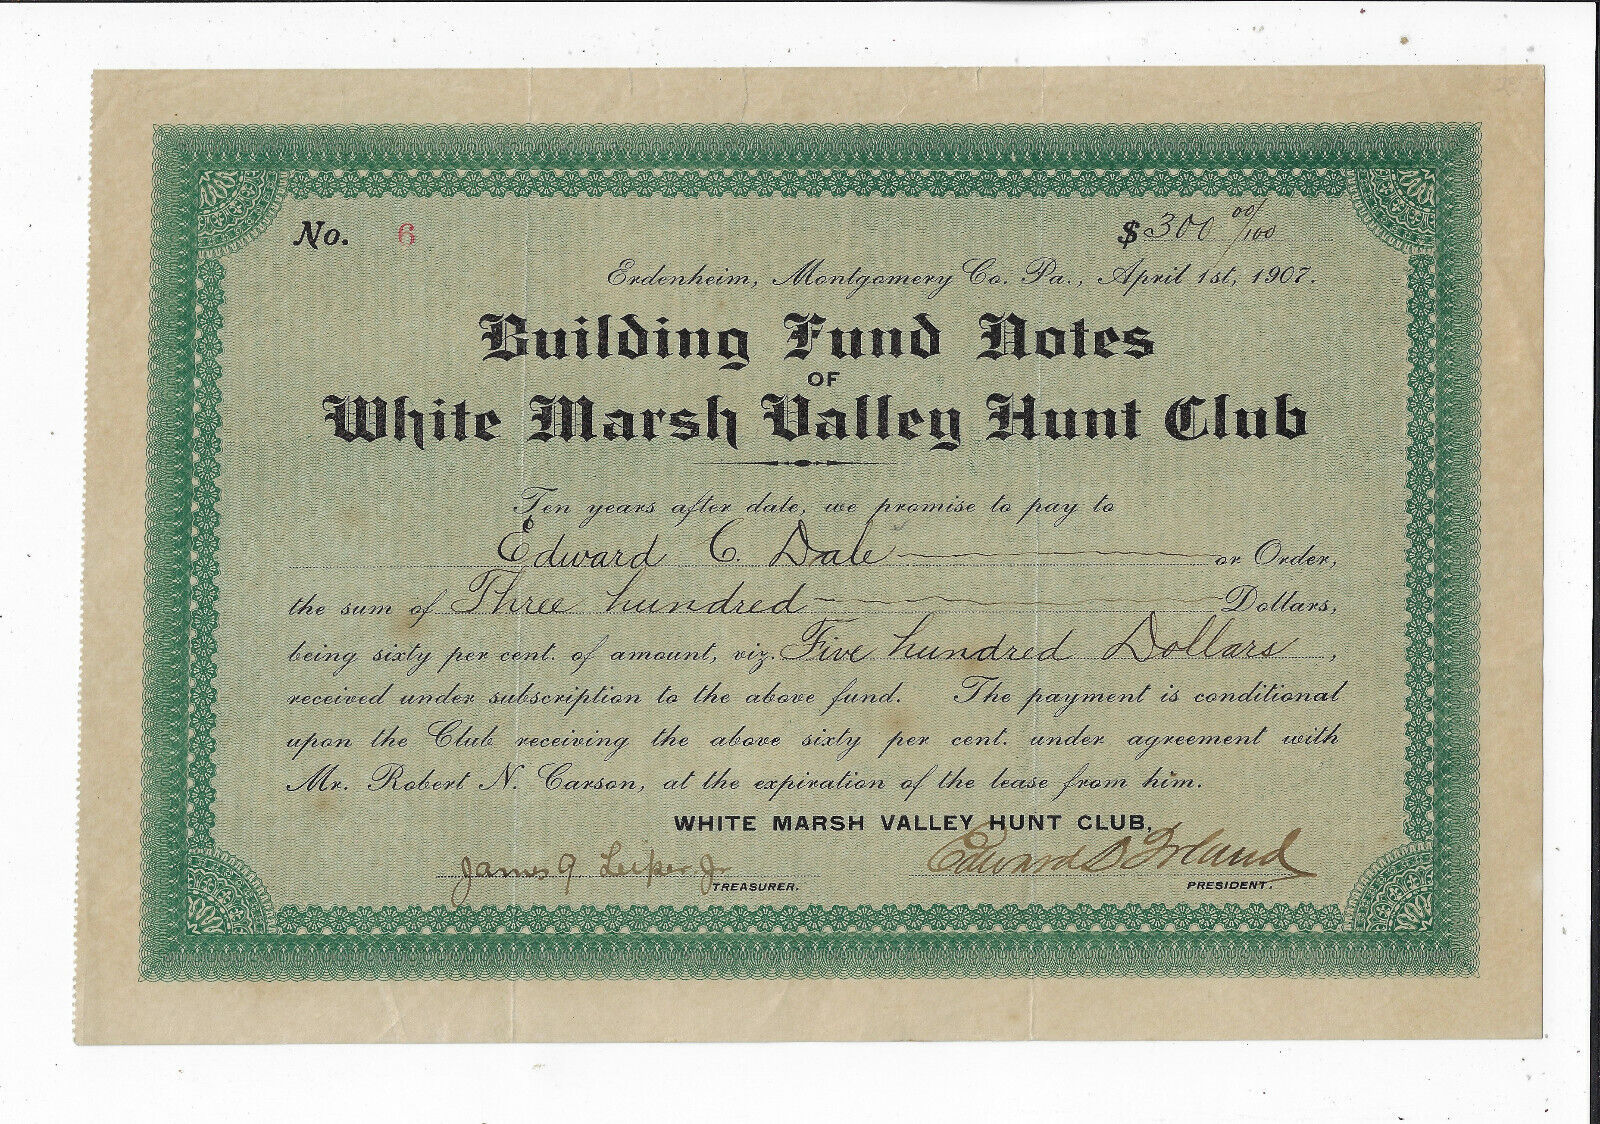 No. 6 $ 300 00/100
Erdenheim, Montgomery Co. Pa., April 1st, 1907.
Building Fund Notes
OF
White Marsh Valley Hunt Club
Ten years after date, we promise to pay to
Edward C. Dale or Order,
the sum of Three hundred Dollars,
being sixty per cent. of amount, viz. Five hundred Dollars,
received under subscription to the above fund. The payment is conditional
upon the Club receiving the above sixty per cent. under agreement with
Mr. Robert N. Carson, at the expiration of the lease from him.
WHITE MARSH VALLEY HUNT CLUB,
James G Leiper Jr Edward D Ireland
TREASURER. PRESIDENT.